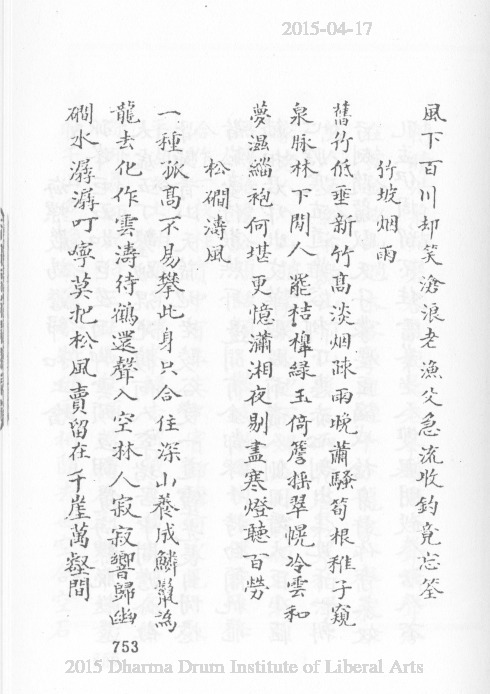 2015-04-17
風下百川却笑滄浪老漁父急流收釣竟忘筌
竹坡烟雨
舊竹低垂新竹高淡烟疎雨晚蕭騷筍根稚子窺
泉脉林下閒人罷桔橰綠玉倚簷搖翠幌冷雲和
夢濕緇袍何堪更憶瀟湘夜剔盡寒燈聽百勞
松磵濤風
一種孤高不易攀此身只合住深山養成鱗鬣為
龍去化作雲濤待鶴還聲入空林人寂寂響歸幽
磵水潺潺叮嚀莫把松風賣留在千崖萬壑間
753
2015 Dharma Drum Institute of Liberal Arts